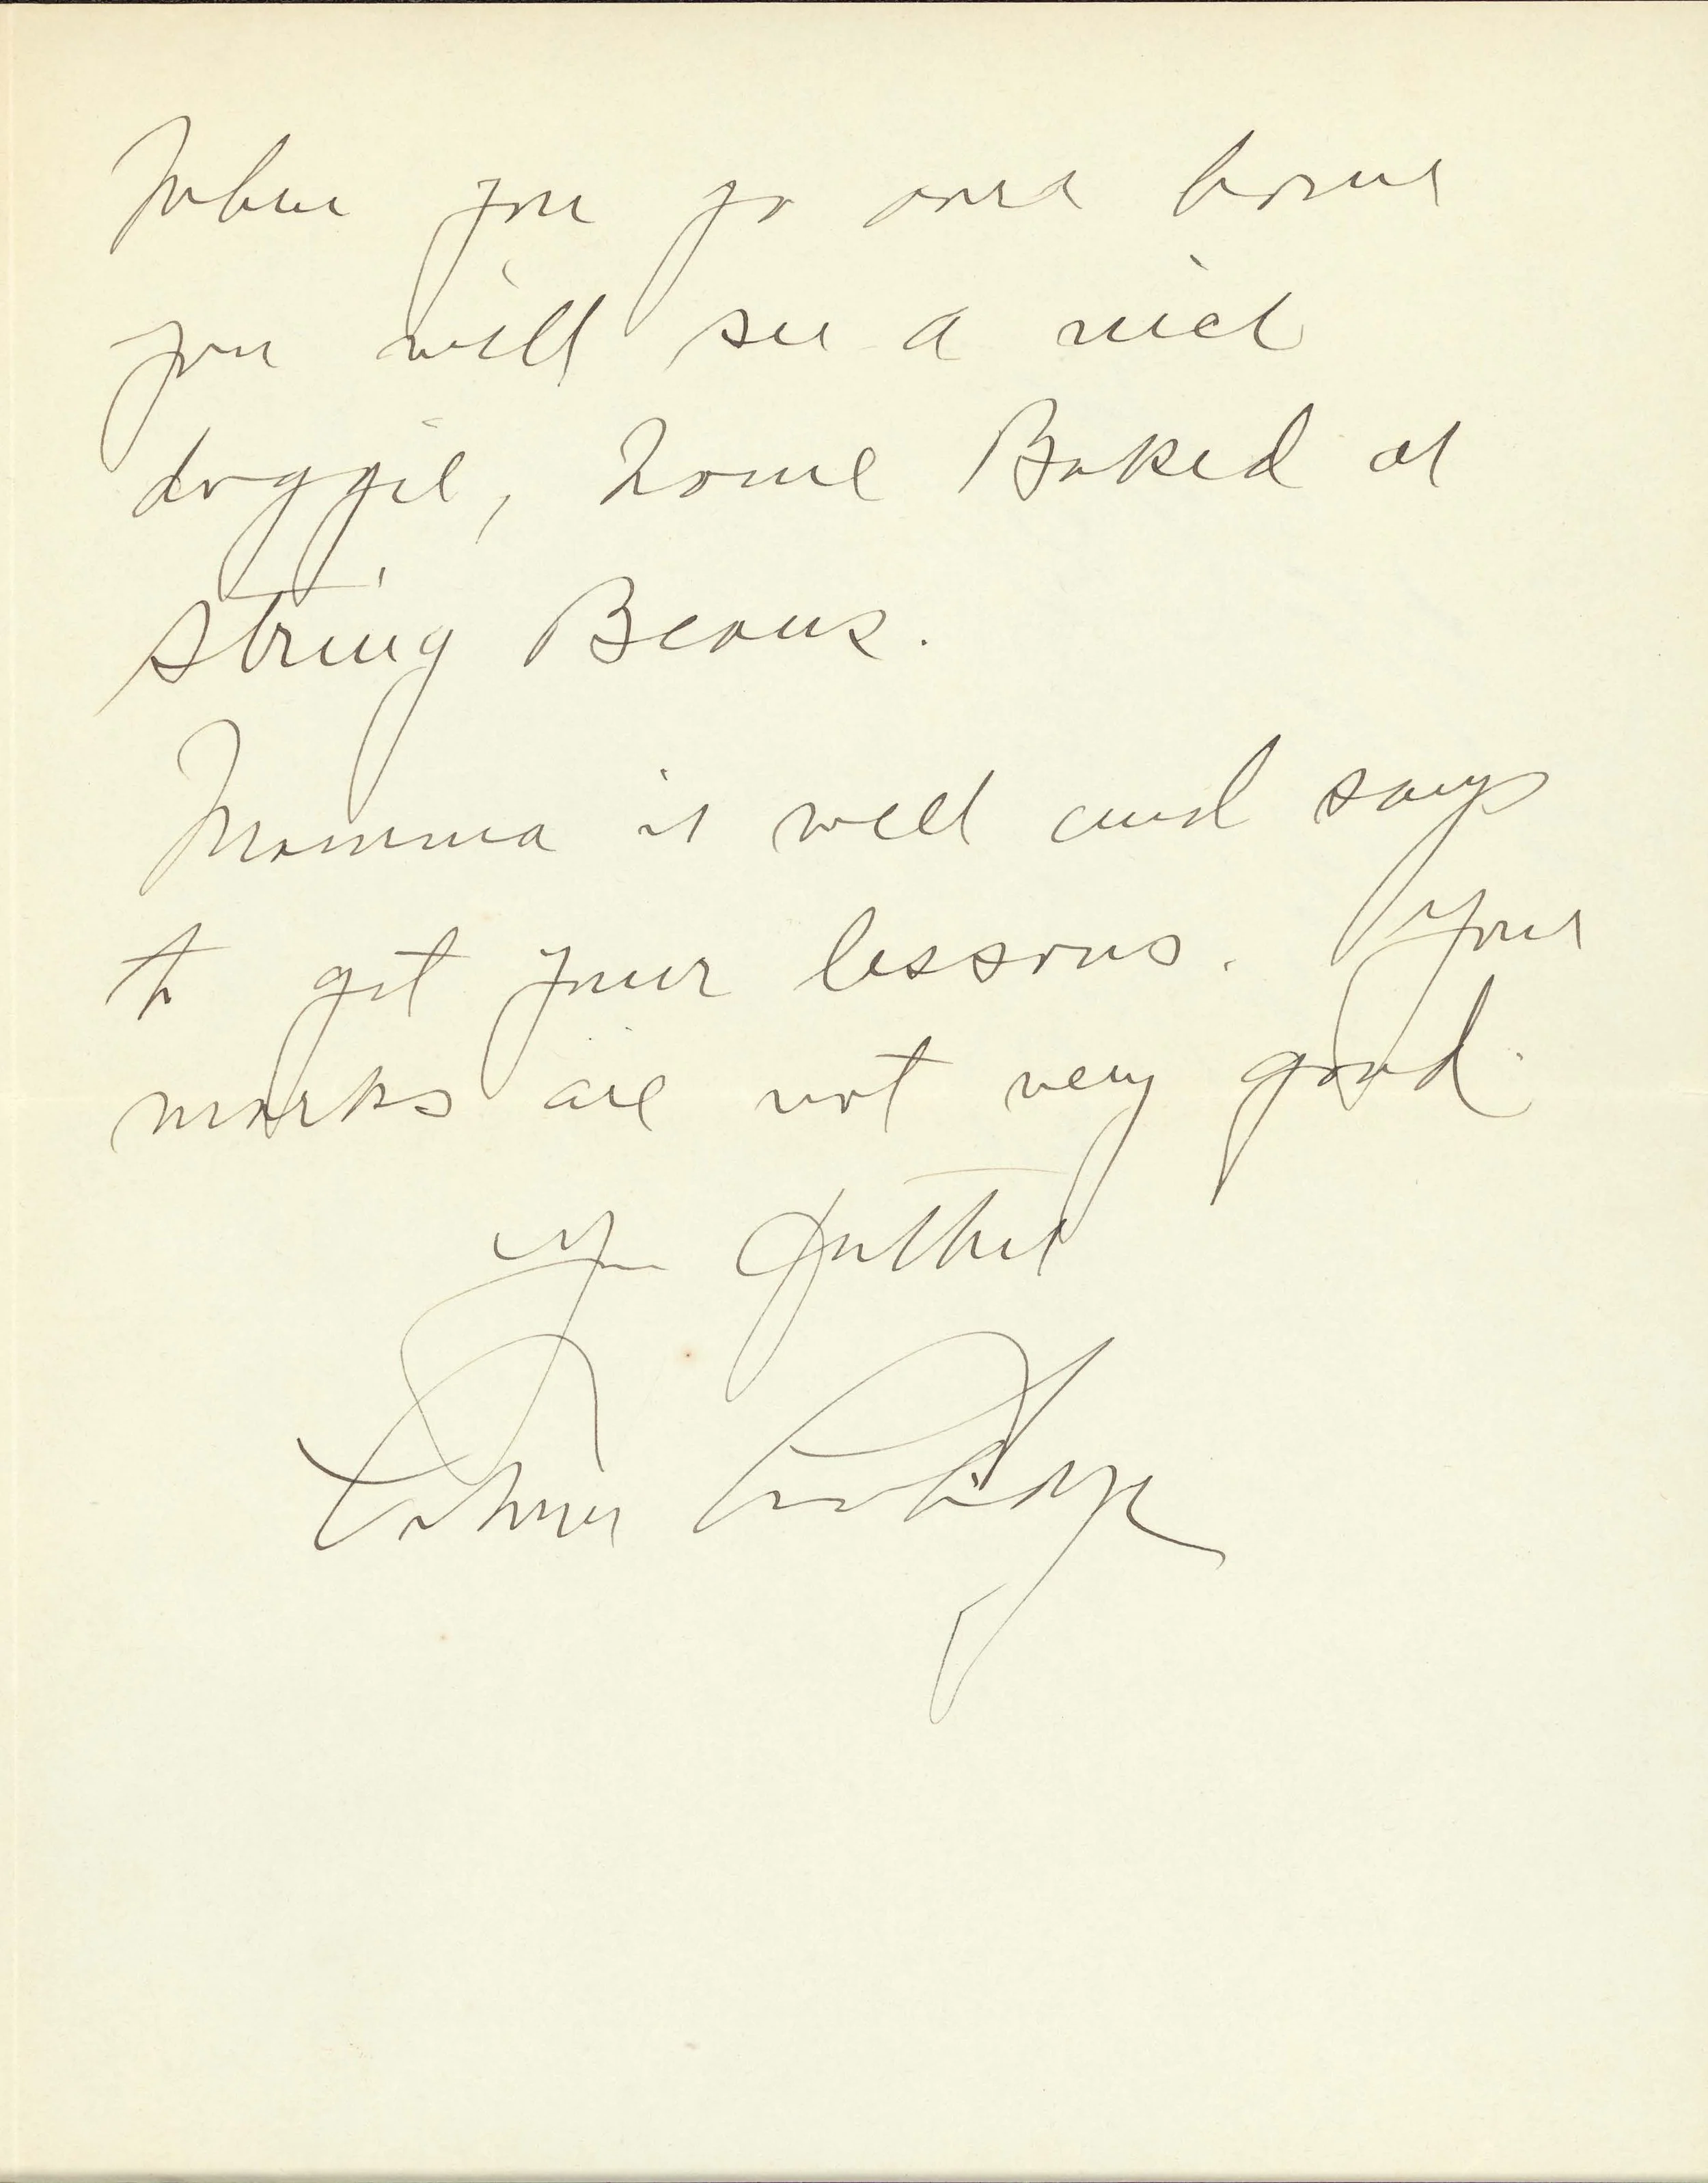 When you go home
you will see a nice
doggie, Baked or
String Beans.
Mamma is well and says
to get your lessons. Your
marks are not very good.
Your father
Calvin Coolidge